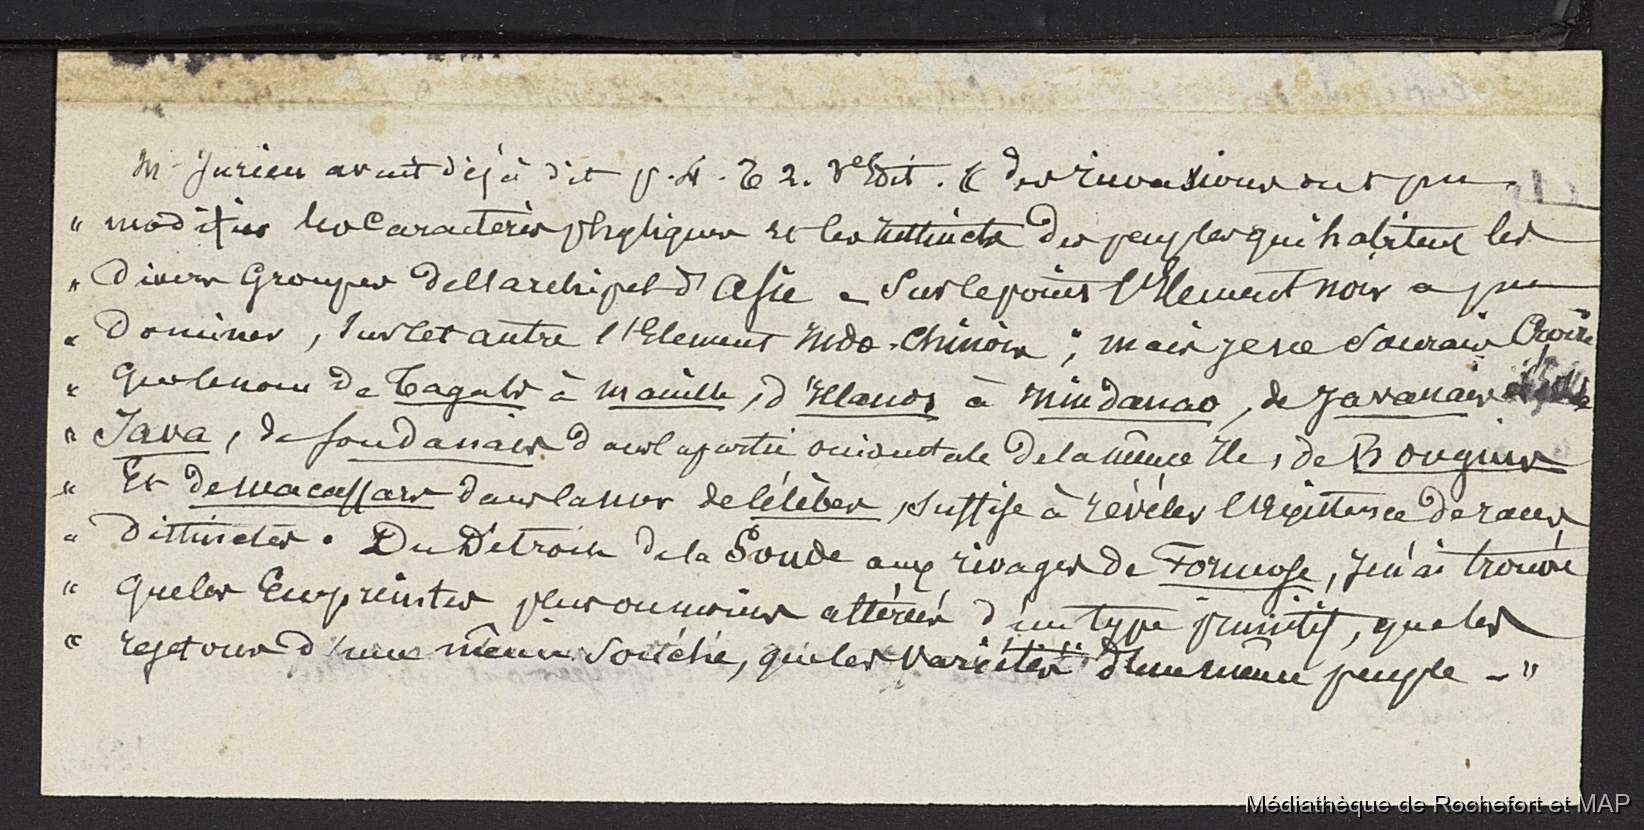 Mr Jurien avait déjà dit p. 4. T 2. Ve Edit. « des invasions ont pu
" modifier les Caractères physiques et les instincts des peuples qui habitent les
" divers Groupes de l'archipel d'Asie – Sur le point l'Element noir a pu
" dominer, sur cet autre l'Element Indo-Chinois ; mais je ne Saurais Croire
" que le nom de Tagals à manille, d'Illanos à Mindanao, de Javanais
" Java, de soudanais dans la partie occidentale de la même Ile, de Bouguis
" Et de macassars dans la nor de Célèbes, suffise à révéler l'Existence de races
" distinctes. Du Détroit de la Sonde aux rivages de Formose, je n'ai trouvé
" que les Empreintes plus ou moins altérées d'un type primitif, que les
" rejetons d'une même souche, que les variétés d'un même peuple – "
Médiathèque de Rochefort et MAP